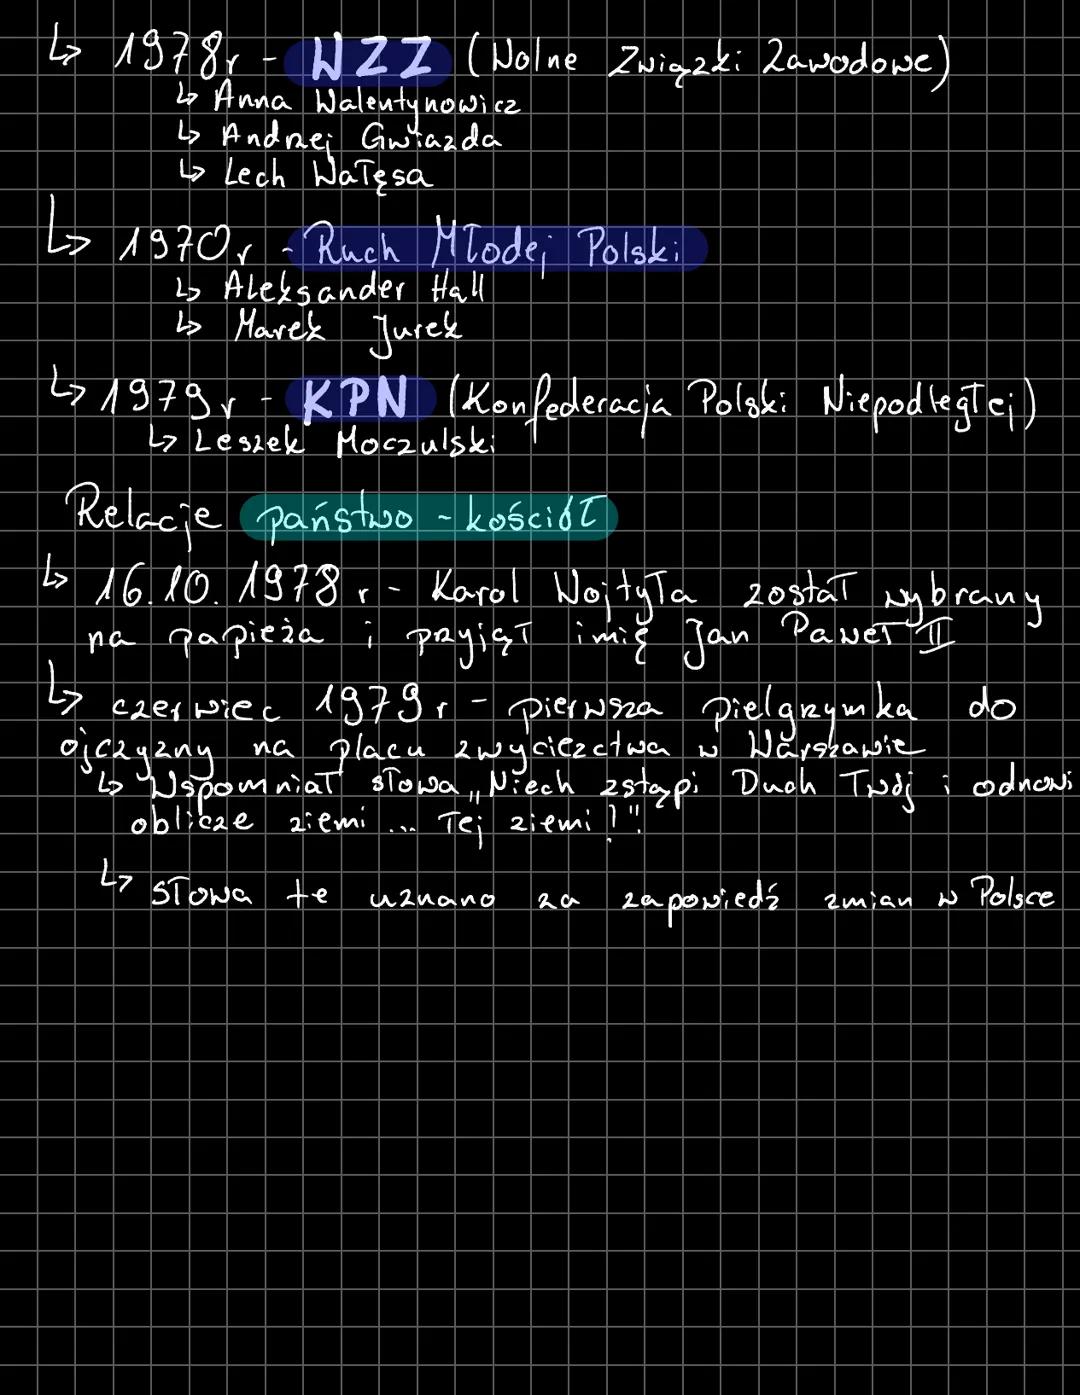 ↳ 1978r - WZZ (Wolne Związki Zawodowe)
↳ Anna Walentynowicz
↳ Andrzej Gwiazda
↳ Lech Wałęsa
↳ 1970r - Ruch Młodej Polski
↳ Aleksander Hall
↳ Marek Jurek
↳ 1979r - KPN (Konfederacja Polski Niepodległej)
↳ Leszek Moczulski
Relacje państwo - kościół
↳ 16.10.1978 r - Karol Wojtyła został wybrany
na papieża i przyjął imię Jan Paweł II
↳ czerwiec 1979 r - pierwsza pielgrzymka do
ojczyzny na placu zwyciezctwa w Warszawie
↳ Wspomniał słowa „Niech zstąpi Duch Twój i odnowi
oblicze ziemi ... Tej ziemi!"
↳ słowa te uznano za zapowiedź zmian w Polsce